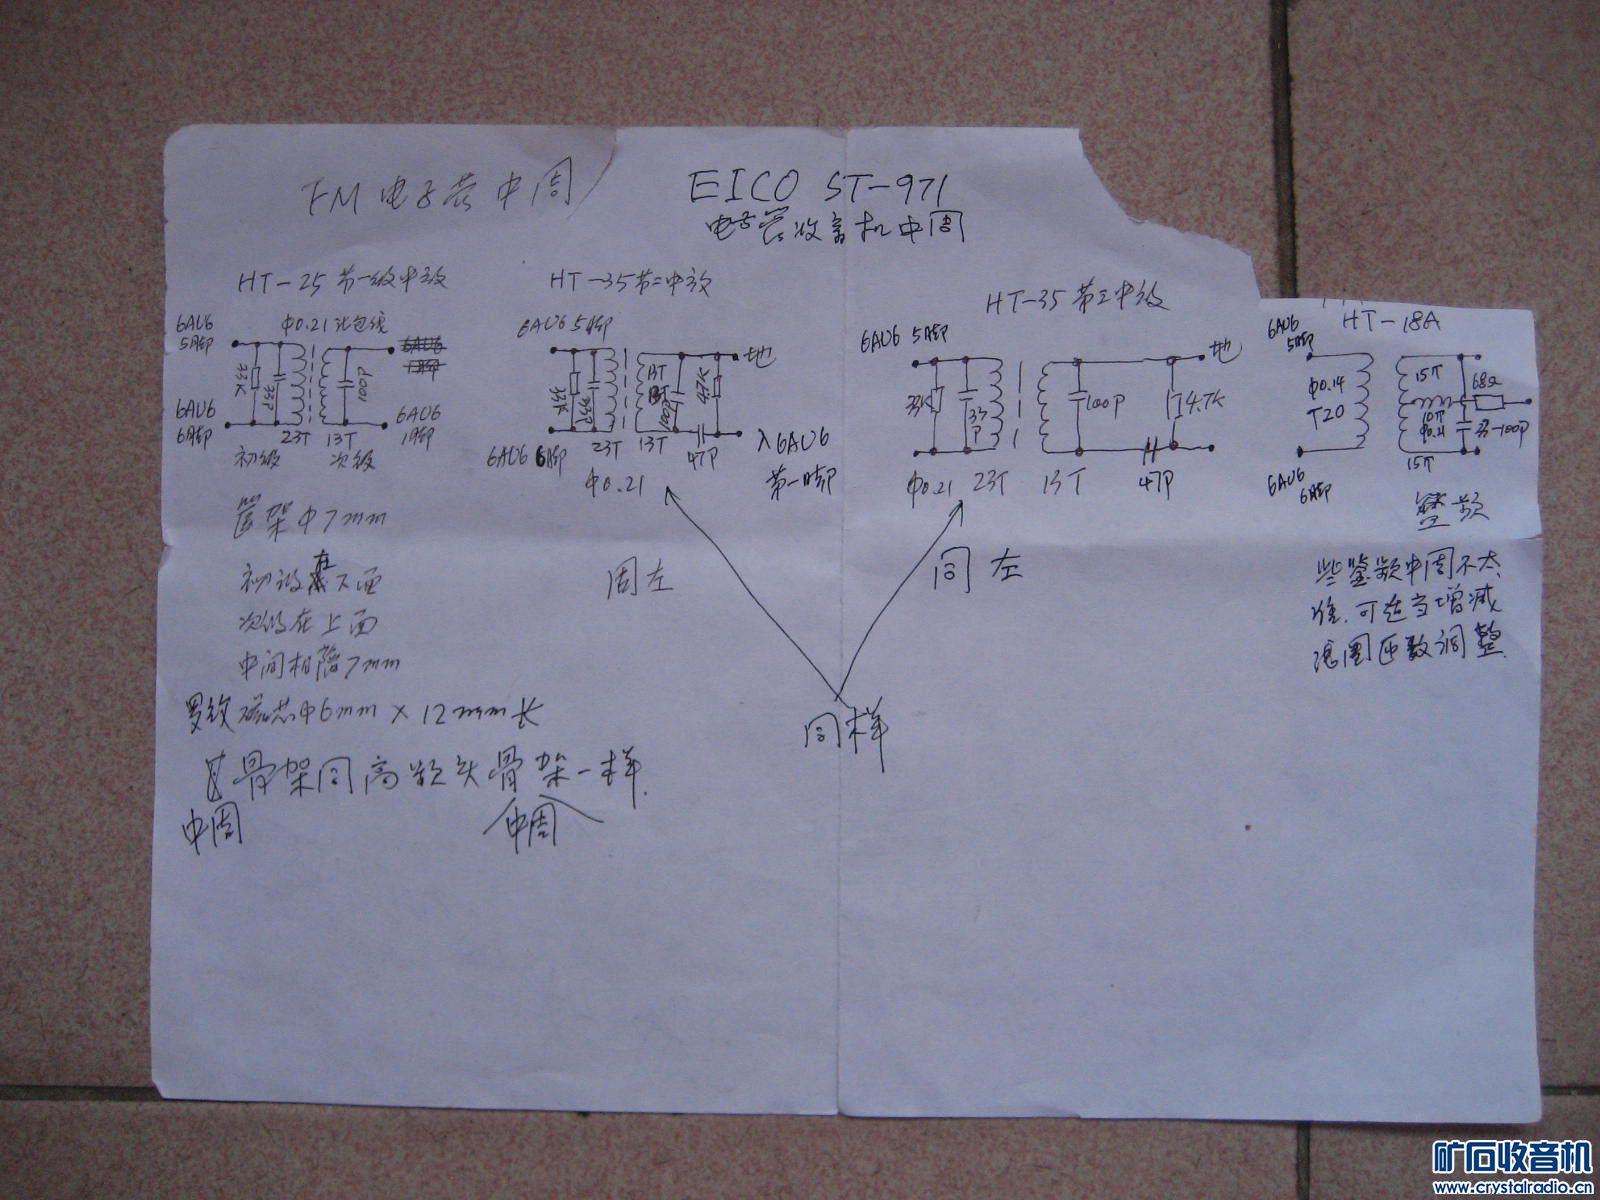 FM电子管中周
EICO ST-971
电子管收音机中周
HT-25 第一级中放
6AU6
5脚
φ0.21沙包线
33K
33P
100P
6AU6
6脚
6AU6
1脚
23T 13T
初级 次级
管架φ7mm
初级在下面
次级在上面
中间相隔7mm
磁芯φ6mm×12mm长
骨架同高频头骨架一样
中周
中周
HT-35第二中放
6AU6 5脚
地
33K
33P
4.7K
6AU6 6脚
23T 13T
47P
入6AU6
第一脚
φ0.21
同左
HT-35第三中放
6AU6 5脚
地
33K
33P
100P
4.7K
φ0.21 23T 13T 47P
同左
同样
HT-18A
6AU6
5脚
φ0.14
T20
15T
68Ω
10T
φ0.21
100P
15T
6AU6
6脚
鉴频
些鉴频中周不太
准.可适当增减
线圈匝数调整
矿石收音机
www.crystalradio.cn